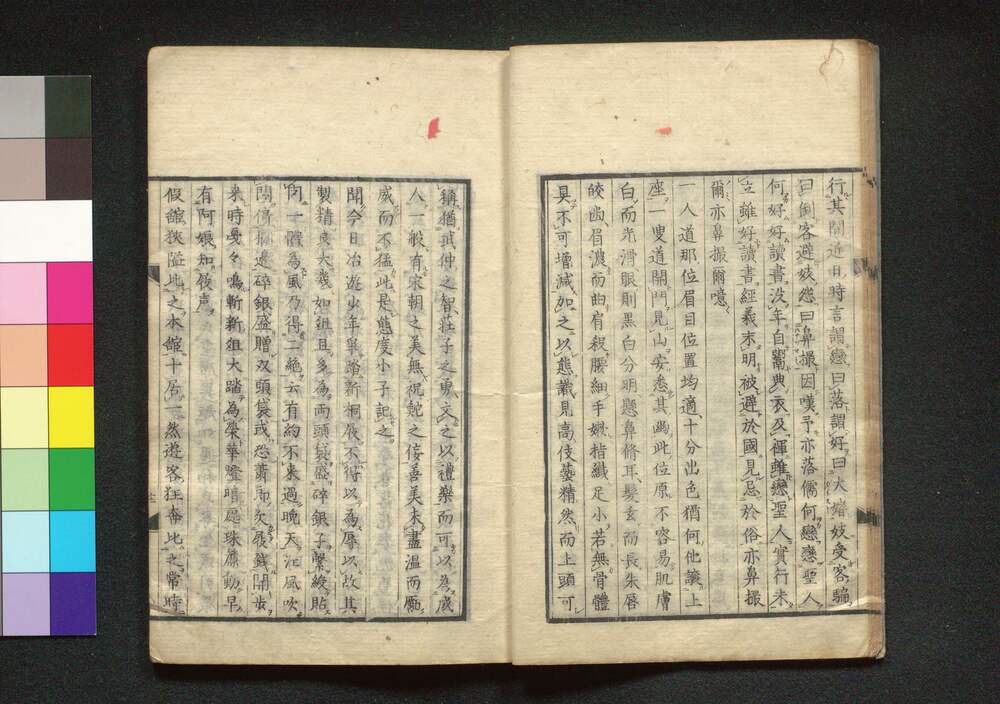 行其間近日時言謂戀曰落謂好曰大嬉妓受客騙
曰倒客避妓怨曰鼻撮因嘆予亦落儒何戀戀聖人
何好好讀書没年自鬻典衣及褌雖戀聖人實行未
立雖好讀書經義未明被避於國見忌於俗亦鼻撮
爾亦鼻撮爾噫
一人道那位眉目位置均適十分出色猶何他讓上
座一叟道開門見山安悉其幽此位原不容易肌膚
白而光滑眼則黒白分明懸鼻脩耳髮玄而長朱唇
皎幽眉濃而曲肩殺腰細手嫩指纖足小若無骨體
具不可增減加之以態識見高伎藝精然而上頭可
稱猶武仲之智莊子之勇文之以禮樂而可以為成
人一般有宋朝之美無祝鮀之佞善美未盡温而厲
威而不猛此是態度小子記之
聞今日冶遊少年單蹈新桐屐不得以為辱以故其
製精良大幾如俎且多為兩頭袋盛碎銀子繫綾貼
向一體為風乃得二絶云有約不来過晩天江風吹
碎銀盛贈双頭袋或恐蕭郎欠屐錢開步
来時曳々鳴嶄新俎大踏為榮華燈暗處珠簾動早
有阿娘知伎声
假舘狹隘比之本舘十居一然遊客狂奔比之常時